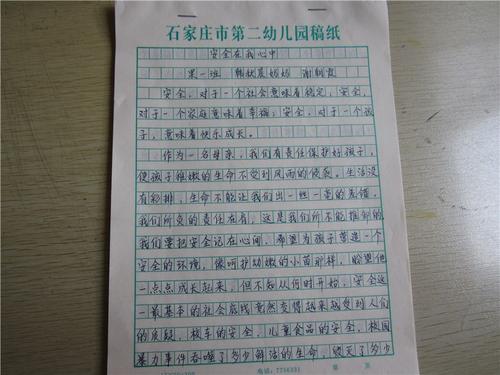 石家庄市第二幼儿园稿纸
安全在我心中
果一班 韩妖晨妈妈 谢朝霞
安全,对于一个社会意味着稳定,安全,
对于一个家庭意味着幸福;安全,对于一个孩
子,意味着快乐成长。
作为一名母亲,我们有责任保护好孩子,
使孩子稚嫩的生命不受到风雨的侵袭。生活没
有彩排,生命不能让我们出一丝一毫的差错,
我们所负的责任在肩,这是我们所不能推卸的
我们要把安全记在心间,希望为孩子营造一个
安全的环境,像呵护幼嫩的小苗那样,盼望他
一点点成长起来,但不知从何时开始,安全这
一最基本的社会底线竟然变得越来越受到人们
的质疑,校车的安全,儿童食品的安全,校园
暴力事件吞噬了多少鲜活的生命,毁灭了多少
电话:7756331 第 页